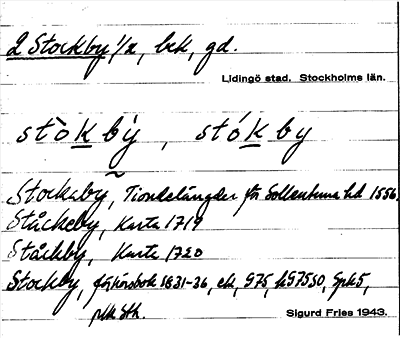 2 Stockby 1/2, bek, gd.
Lidingö stad. Stockholms län.
stòkbý, stókby
Stockaby, Tiondelängder för Sollentuna hd 1556.
Ståckeby, Karta 1719
Ståckby, Karta 1720
Stockby, förhörsbok 1831-36, ek, G75, hG75SO, Spk5,
rik Sth.
Sigurd Fries 1943.